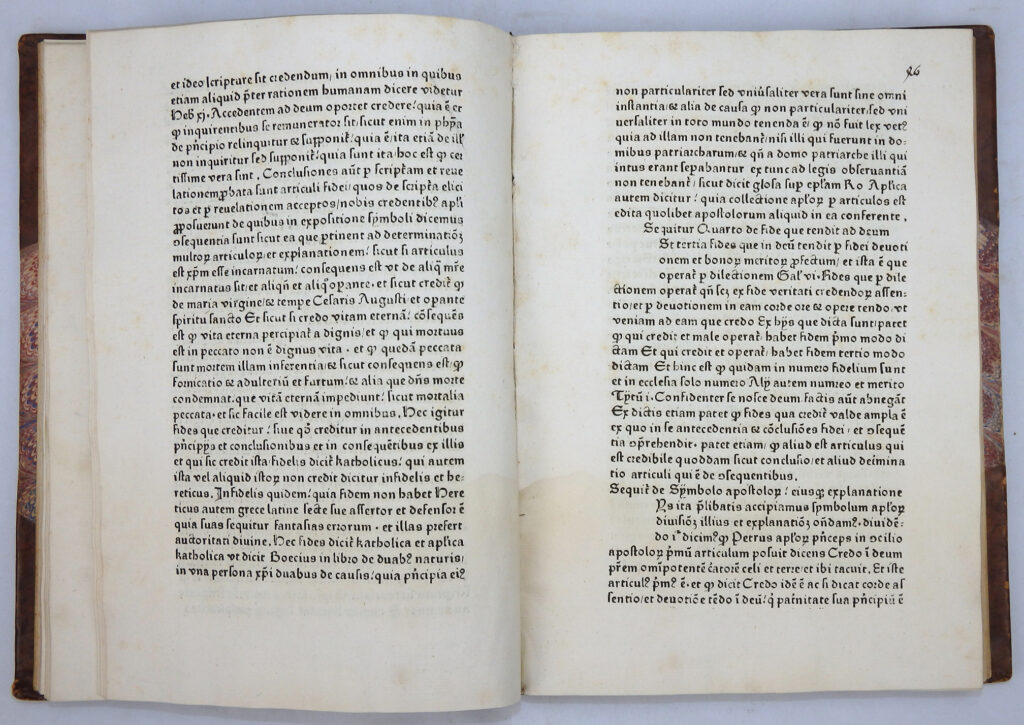 et ideo scripture sit credendum, in omnibus in quibus
etiam aliquid p̄ter rationem humanam dicere videtur
Heb xj. Accedentem ad deum oportet credere/ quia ē et
ꝙ inquirentibus se remunerator sit/ sicut enim in phȳa
de pͥncipio relinquitur ⁊ supponit᷑/ quia ē ita etiā de ill᷑
non inquiritur sed supponit᷑/ quia sunt ita/ hoc est ꝙ cer
tissime vera sint. Conclusiones aūt ꝑ scripturam et reue
lationem ꝓbata sunt articuli fidei/ quos de scripta elici
tos et ꝑ reuelationem acceptos/ nobis credentibꝫ apl̄i
ꝓposuerunt de quibus in expositione symboli dicemus
ꝯsequentia sunt sicut ea que ꝑtinent ad determinationē
multoꝝ articuloꝝ et explanationem/ sicut si articulus
est xp̄m esse incarnatum/ consequens est vt de aliq̄ mr̄e
incarnatus sit/ et aliqn̄ et aliq̊ opante. et sicut credit᷑ ꝙ
de maria virgine/ ⁊ tempe Cesaris Augusti et opante
spiritu sancto Et sicut si credo vitam eternā/ cōsequēs
est ꝙ vita eterna percipiat᷑ a dignis/ et ꝙ qui mortuus
est in peccato non ē dignus vita. et ꝙ quedā peccata
sunt mortem illam inferentia/ ⁊ sicut consequens est/ ꝙ
fornicatio ⁊ adulteriū et furtum/ ⁊ alia que dn̄s morte
condemnat. que vitā eternā impediunt/ sicut mortalia
peccata. et sic facile est videre in omnibus. Hec igitur
fides que creditur/ siue qō creditur in antecedentibus
pͥncipȳs et conclusionibus et in consequētibus ex illis
et qui sic credit ista/ fidelis dicit᷑ katholicus/ qui autem
ista vel aliquid istoꝝ non credit dicitur infidelis et he-
reticus. Infidelis quidem/ quia fidem non habet Here
ticus autem grece latine secte sue assertor et defensor ē
quia suas sequitur fantasias errorum. et illas prefert
auctoritati diuine. Hec fides dicit᷑ katholica et apl̄ica
katholica vt dicit Boecius in libro de duabꝫ naturis/
in vna persona xp̄i duabus de causis/ quia pͥncipia eiꝰ
96
non particulariter sed vniūsaliter vera sunt sine omni
instantia/ ⁊ alia de causa ꝙ non particulariter/ sed vni
uersaliter in toto mundo tenenda ē/ ꝙ nō fuit lex vetꝰ
quia ad illam non tenebant᷑/ nisi illi qui fuerunt in do-
mibus patriarcharum/ ⁊ qn̄ a domo patriarche illi qui
intus erant sepabantur ex tunc ad legis obseruantiā
non tenebant᷑/ sicut dicit glosa sup epl̄am Ro Apl̄ica
autem dicitur/ quia collectione apl̄oꝝ ꝑ articulos est
edita quolibet apostolorum aliquid in ea conferente.
Sequitur Quarto de fide que tendit ad deum
St tertia fides que in deū tendit ꝑ fidei deuoti
onem et bonoꝝ meritoꝝ ꝓfectum/ et ista ē que
operat᷑ ꝑ dilectionem Gal᷑ vi. Fides que ꝑ dile
ctionem operat᷑ qn̄ scꝫ ex fide veritati credendoꝝ assen-
tio/ et ꝑ deuotionem in eam corde ore ⁊ opere tendo/ vt
veniam ad eam que credo Ex hȳs que dicta sunt/ patet
ꝙ qui credit et male operat᷑/ habet fidem pͥmo modo di
ctam Et qui credit et operat᷑/ habet fidem tertio modo
dictam Et hinc est ꝙ quidam in numero fidelium sunt
et in ecclesia solo numero Alȳ autem numreo et merito
Tȳtū i. Confidenter se nosce deum factis aūt abnegāt
Ex dictis etiam patet ꝙ fides qua credit᷑ valde ampla ē
ex quo in se antecedentia ⁊ cōclusiōes fidei/ et ꝯsequē
tia ꝯprehendit. patet etiam/ ꝙ aliud est articulus qui
est credibile quoddam sicut conclusio/ et aliud det̄mina
tio articuli qui ē de ꝯsequentibus.
Sequit᷑ de Symbolo apostoloꝝ/ eiusqꝫ explanatione
Ys ita p̄libatis accipiamus symbolum apl̄oꝝ
diuisiōꝫ illius et explanatiōꝫ on̄dam/ diuidē-
do iᵐ dicimꝰ ꝙ Petrus apl̄oꝝ pͥnceps in ꝯcilio
apostoloꝝ pͥmū articulum posuit dicens Credo ī deum
pr̄em omīpotentē c̄atorē celi et terre/ et ibi tacuit. Et iste
articulꝰ pͥmꝰ ē. et ꝙ dicit Credo idē ē ac si dicat corde as
sentio/ et deuotiōe tēdo ī deū/ q̄ pat̄nitate sua pͥncipiū ē